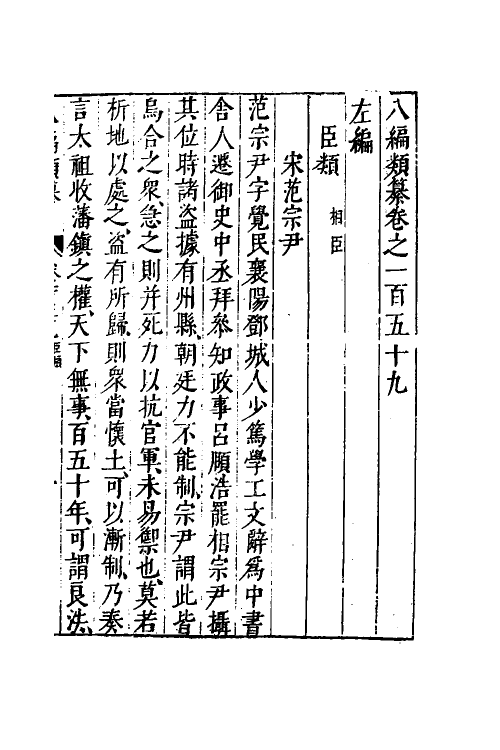 八編類纂卷之一百五十九
左編
臣類 相臣
宋范宗尹
范宗尹字覺民襄陽鄧城人少篤學工文辭爲中書
舍人遷御史中丞拜參知政事呂頤浩罷相宗尹攝
其位時諸盜據有州縣朝廷力不能制宗尹謂此皆
烏合之衆急之則并死力以抗官軍未易禦也莫若
析地以處之盜有所歸則衆當懷土可以漸制乃奏
言太祖收藩鎮之權天下無事百五十年可謂良法